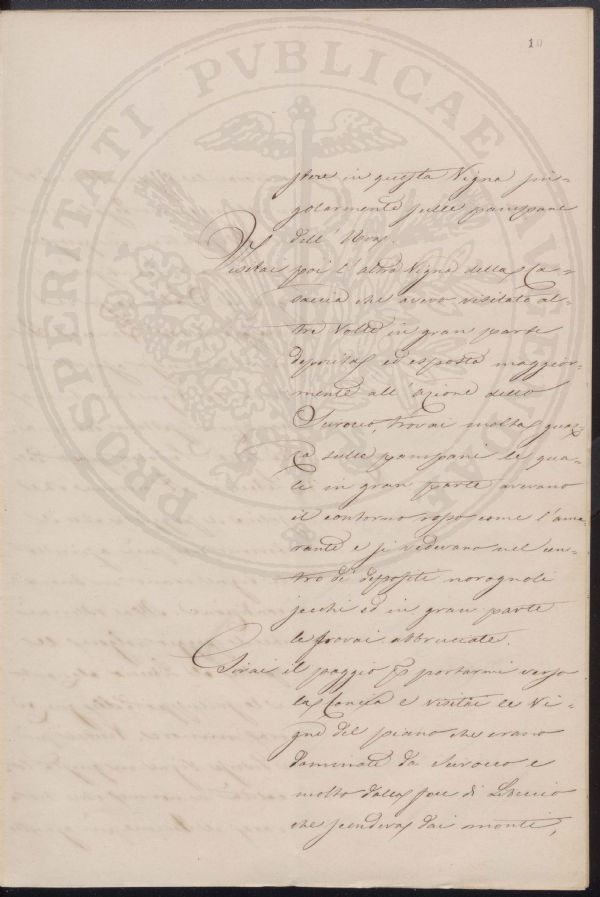 10
PROSPERITATI PVBLICAE AVGENDAE
stere in questa Vigna sin-
golarmente sulle pampane
dell' Uva.
Visitai poi l'altra Vigna della Ca-
saccia che avevo visitata al-
tre Volte in gran parte
deperita ed esposta maggior-
mente all'azione dello
Scirocco trovai molta guaz-
za sulle pampani le qua-
li in gran parte avevano
il contorno rosso come l'ama-
ranto e si vedevano nel cen-
tro de' depositi
secchi ed in gran parte
le trovai abbruciate.
Tirai il passo per portarmi verso
la Conca e visitai le Vi-
gne del piano che erano
dominate da Scirocco e
molto dalla di Libeccio
che scendeva dai monti,